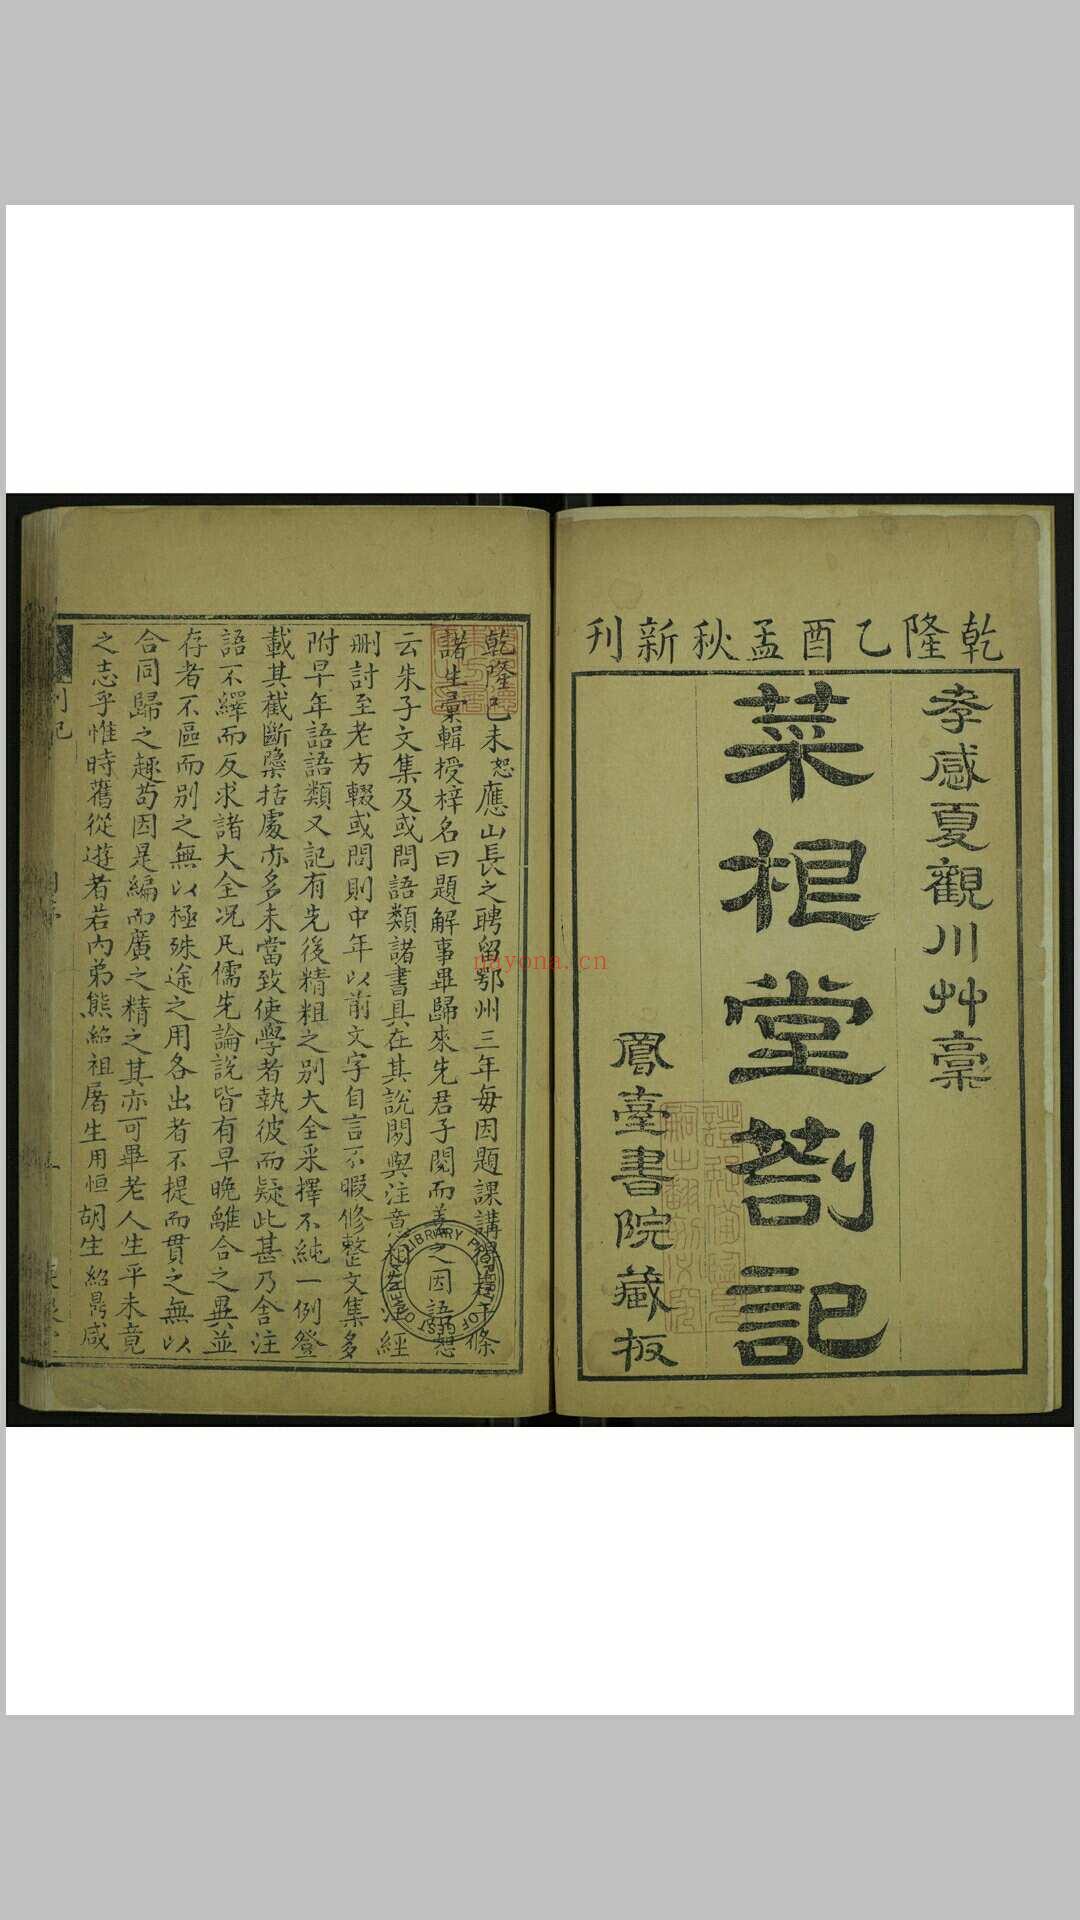 乾隆乙酉孟秋新刊
孝感夏觀川艸稾
菜根堂劄記
鳳臺書院藏板
乾隆己未恕應山長之聘留鄂州三年每因題課講得若干條
諸生彙輯授梓名曰題解事畢歸來先君子閱而善之因語恕
云朱子文集及或問語類諸書具在其說閒與注意相左注經
刪討至老方輟或問則中年以前文字自言不暇修整文集多
附早年語語類又記有先後精粗之別大全采擇不純一例登
載其截斷檃括處亦多未當致使學者執彼而疑此甚乃舍注
語不繹而反求諸大全況凡儒先論說皆有早晚離合之異並
存者不區而別之無以極殊途之用各出者不提而貫之無以
合同歸之趣苟因是編而廣之精之其亦可畢老人生平未竟
之志乎惟時舊從遊者若內弟熊紹祖屠生用恒胡生紹鼎咸
劄記
LIBRARY
nayona.cn